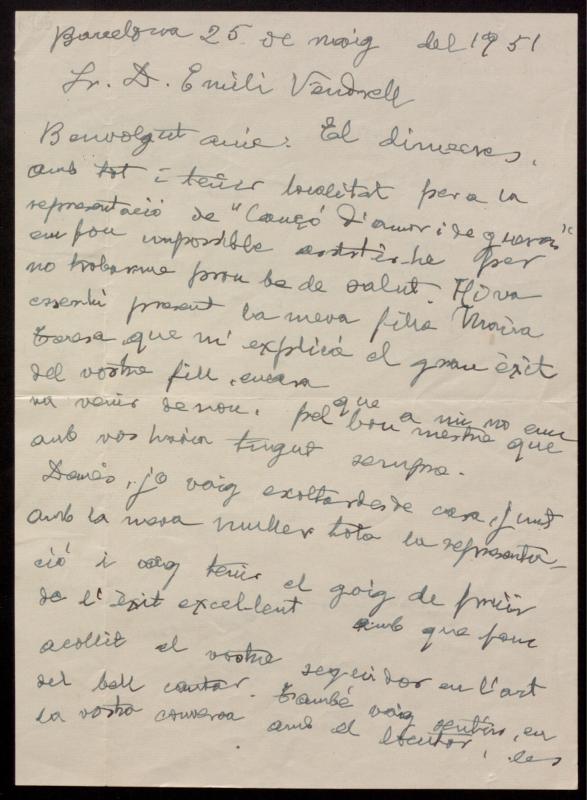 Barcelona 25 de maig del 1951
Sr. D. Emili Vendrell
Benvolgut amic: El dimecres,
amb tot i tenir localitat per a la
representació de "Cançó d'amor i de guerra"
em fou impossible assistir-he per
no trobarme prou be de salut. Hi va
esser present la meva filla Maria
Teresa, que m'explicá el gran èxit
del vostre fill, encara
que a mi no em
va venir de nou, pel bon mestre que
amb vos havia tingut sempre.
Demés, jo vaig escoltar desde casa, junt
amb la meva muller tota la representa-
ció i vaig tenir el goig de fruïr
de l'èxit excel·lent amb que fou
acollit el vostre seguidor en l'art
del bell cantar. També vaig sentir, en
la vostra conversa amb el locutor, les